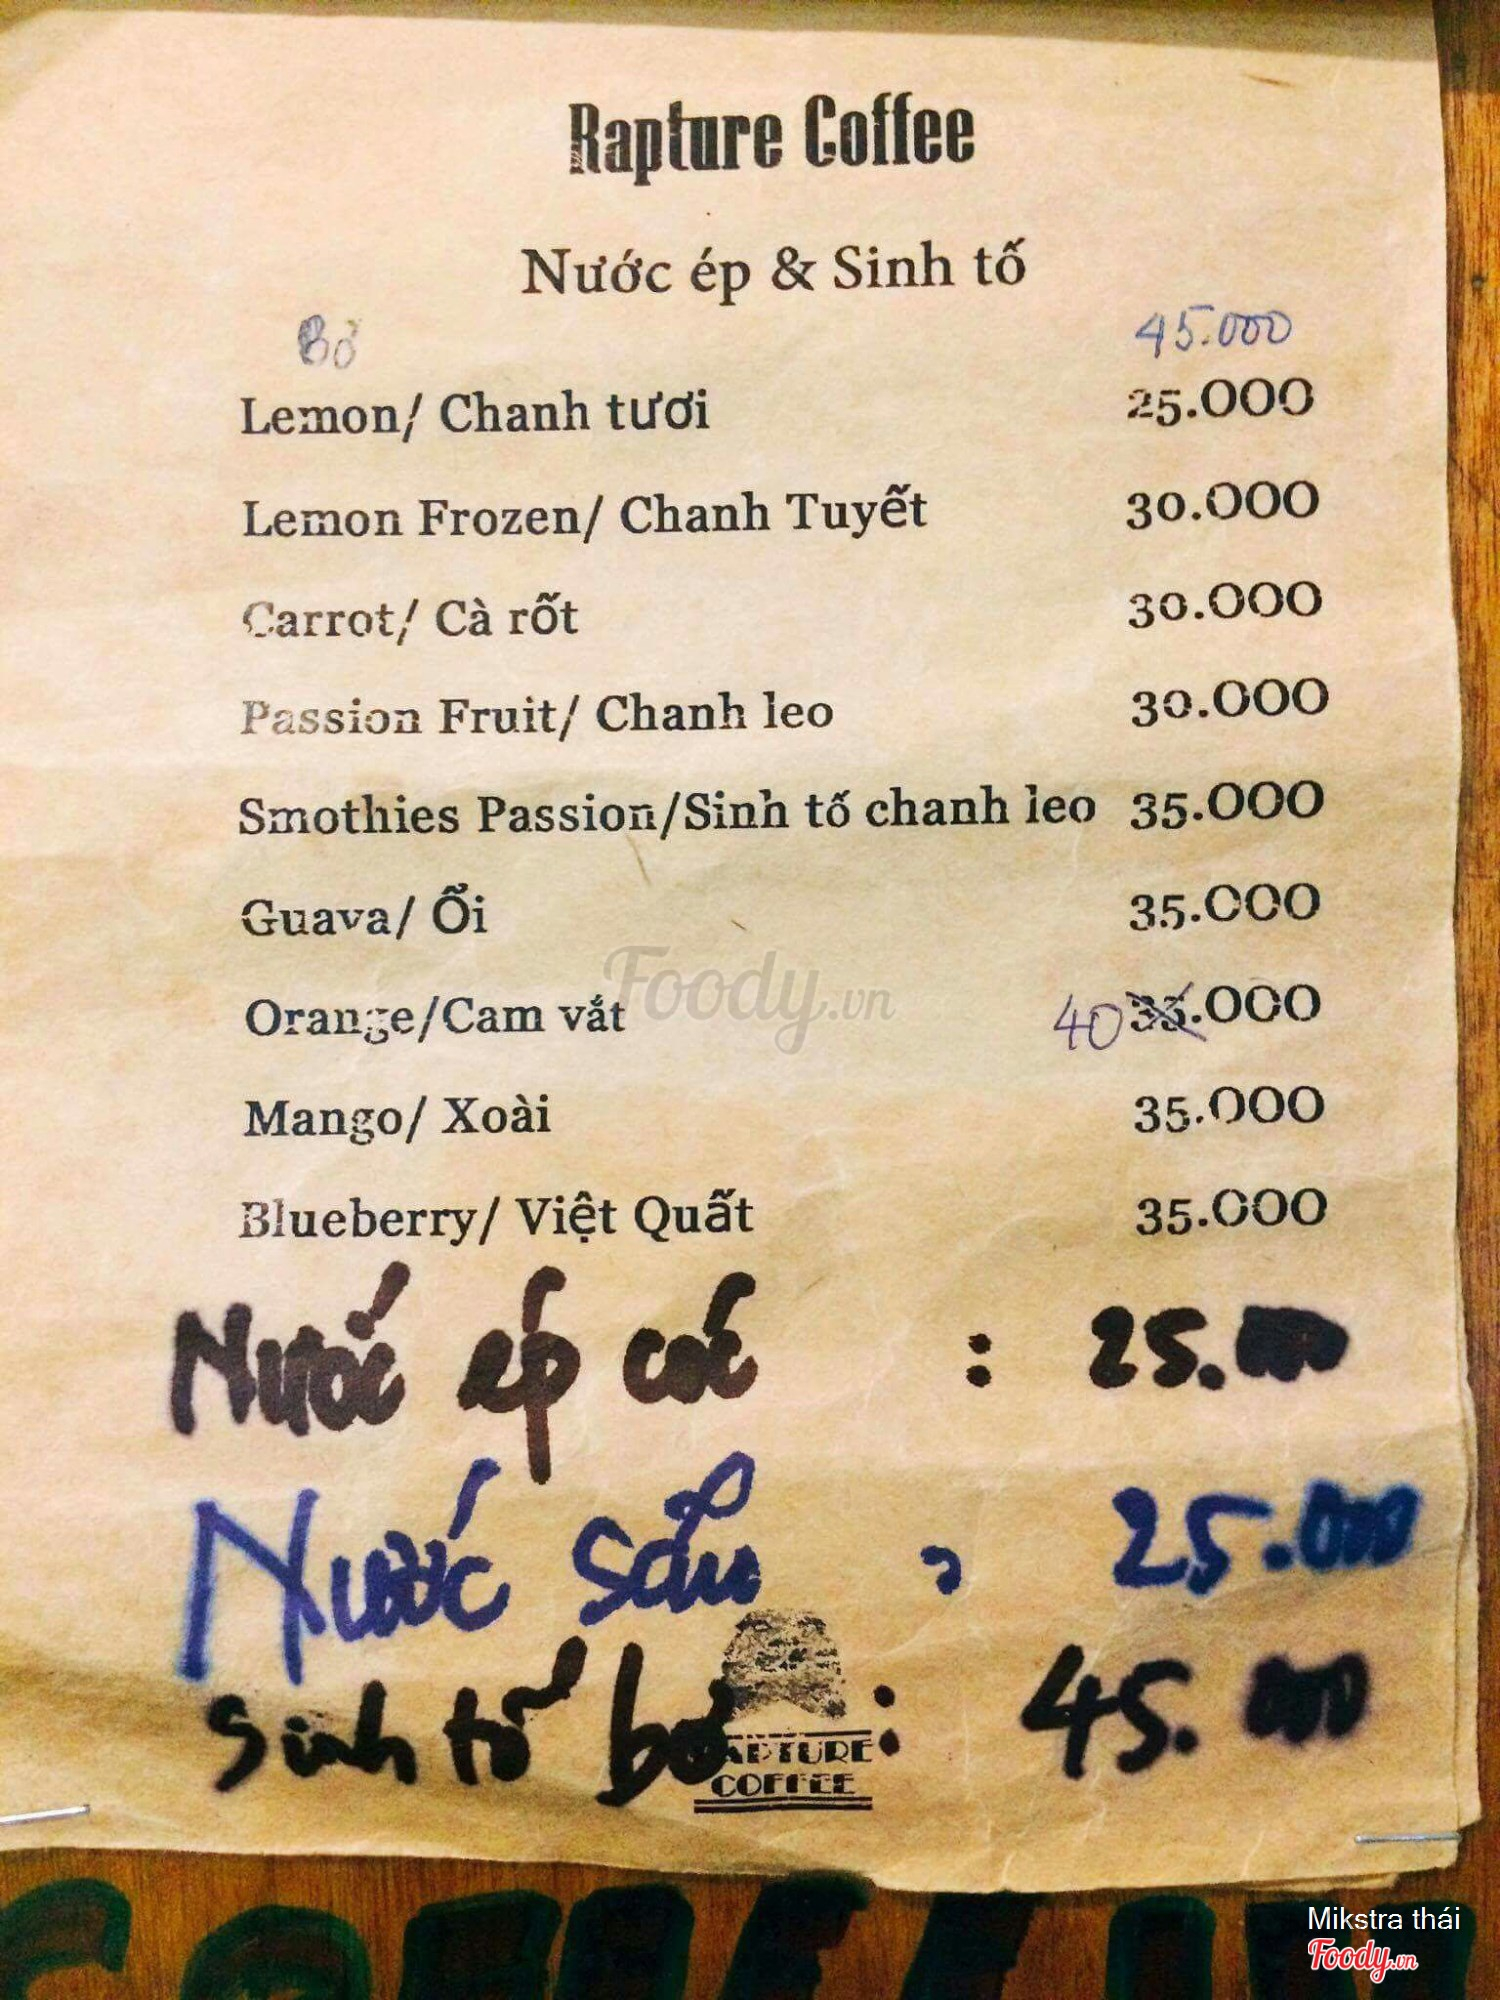 Rapture Coffee
Nước ép & Sinh tố
Bơ 45.000
Lemon/ Chanh tươi 25.000
Lemon Frozen/ Chanh Tuyết 30.000
Carrot/ Cà rốt 30.000
Passion Fruit/ Chanh leo 30.000
Smothies Passion/Sinh tố chanh leo 35.000
Guava/ Ổi 35.000
Orange/Cam vắt 40 35.000
Mango/ Xoài 35.000
Blueberry/ Việt Quất 35.000
Foody.vn
Nước ép cóc : 25.000
Nước sấu : 25.000
Sinh tố bơ : 45.000
RAPTURE
COFFEE
Mikstra thái
Foody.vn